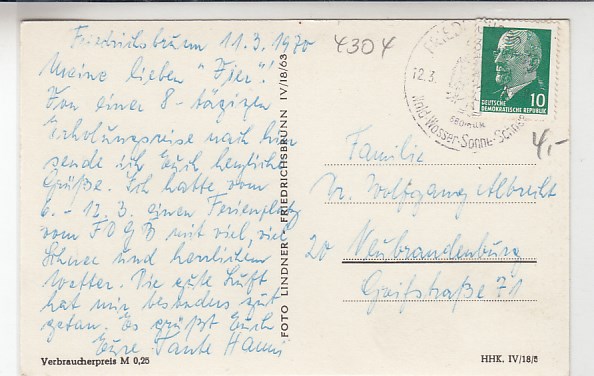 Friedrichsbrunn 11.3.1970
Meine lieben "Vier"!
Von einer 8-tägigen
Erholungsreise nach hier
sende ich Euch herzliche
Grüße. Ich hatte vom
6. - 12.3. einen Ferienplatz
vom FDGB mit viel, viel
Schnee und herrlichem
Wetter. Die gute Luft
hat mir besonders gut
getan. Es grüßt Euch
Eure Tante Hanni
Verbraucherpreis M 0,25
FOTO LINDNER - FRIEDRICHSBRUNN IV/18/63
4304
12.3.
Wald-Wasser-Sonne-Schnee
DEUTSCHE
DEMOKRATISCHE REPUBLIK
10
4,-
Familie
Dr. Wolfgang Albrecht
20 Neubrandenburg
71
HHK. IV/18/8